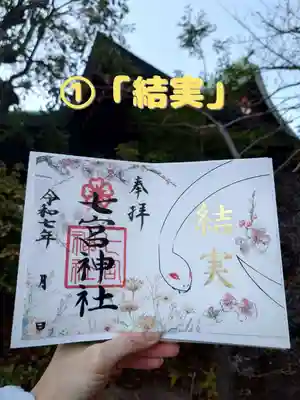 ①「結実」
奉拝
七宮神社
令和七年 月 日
結実